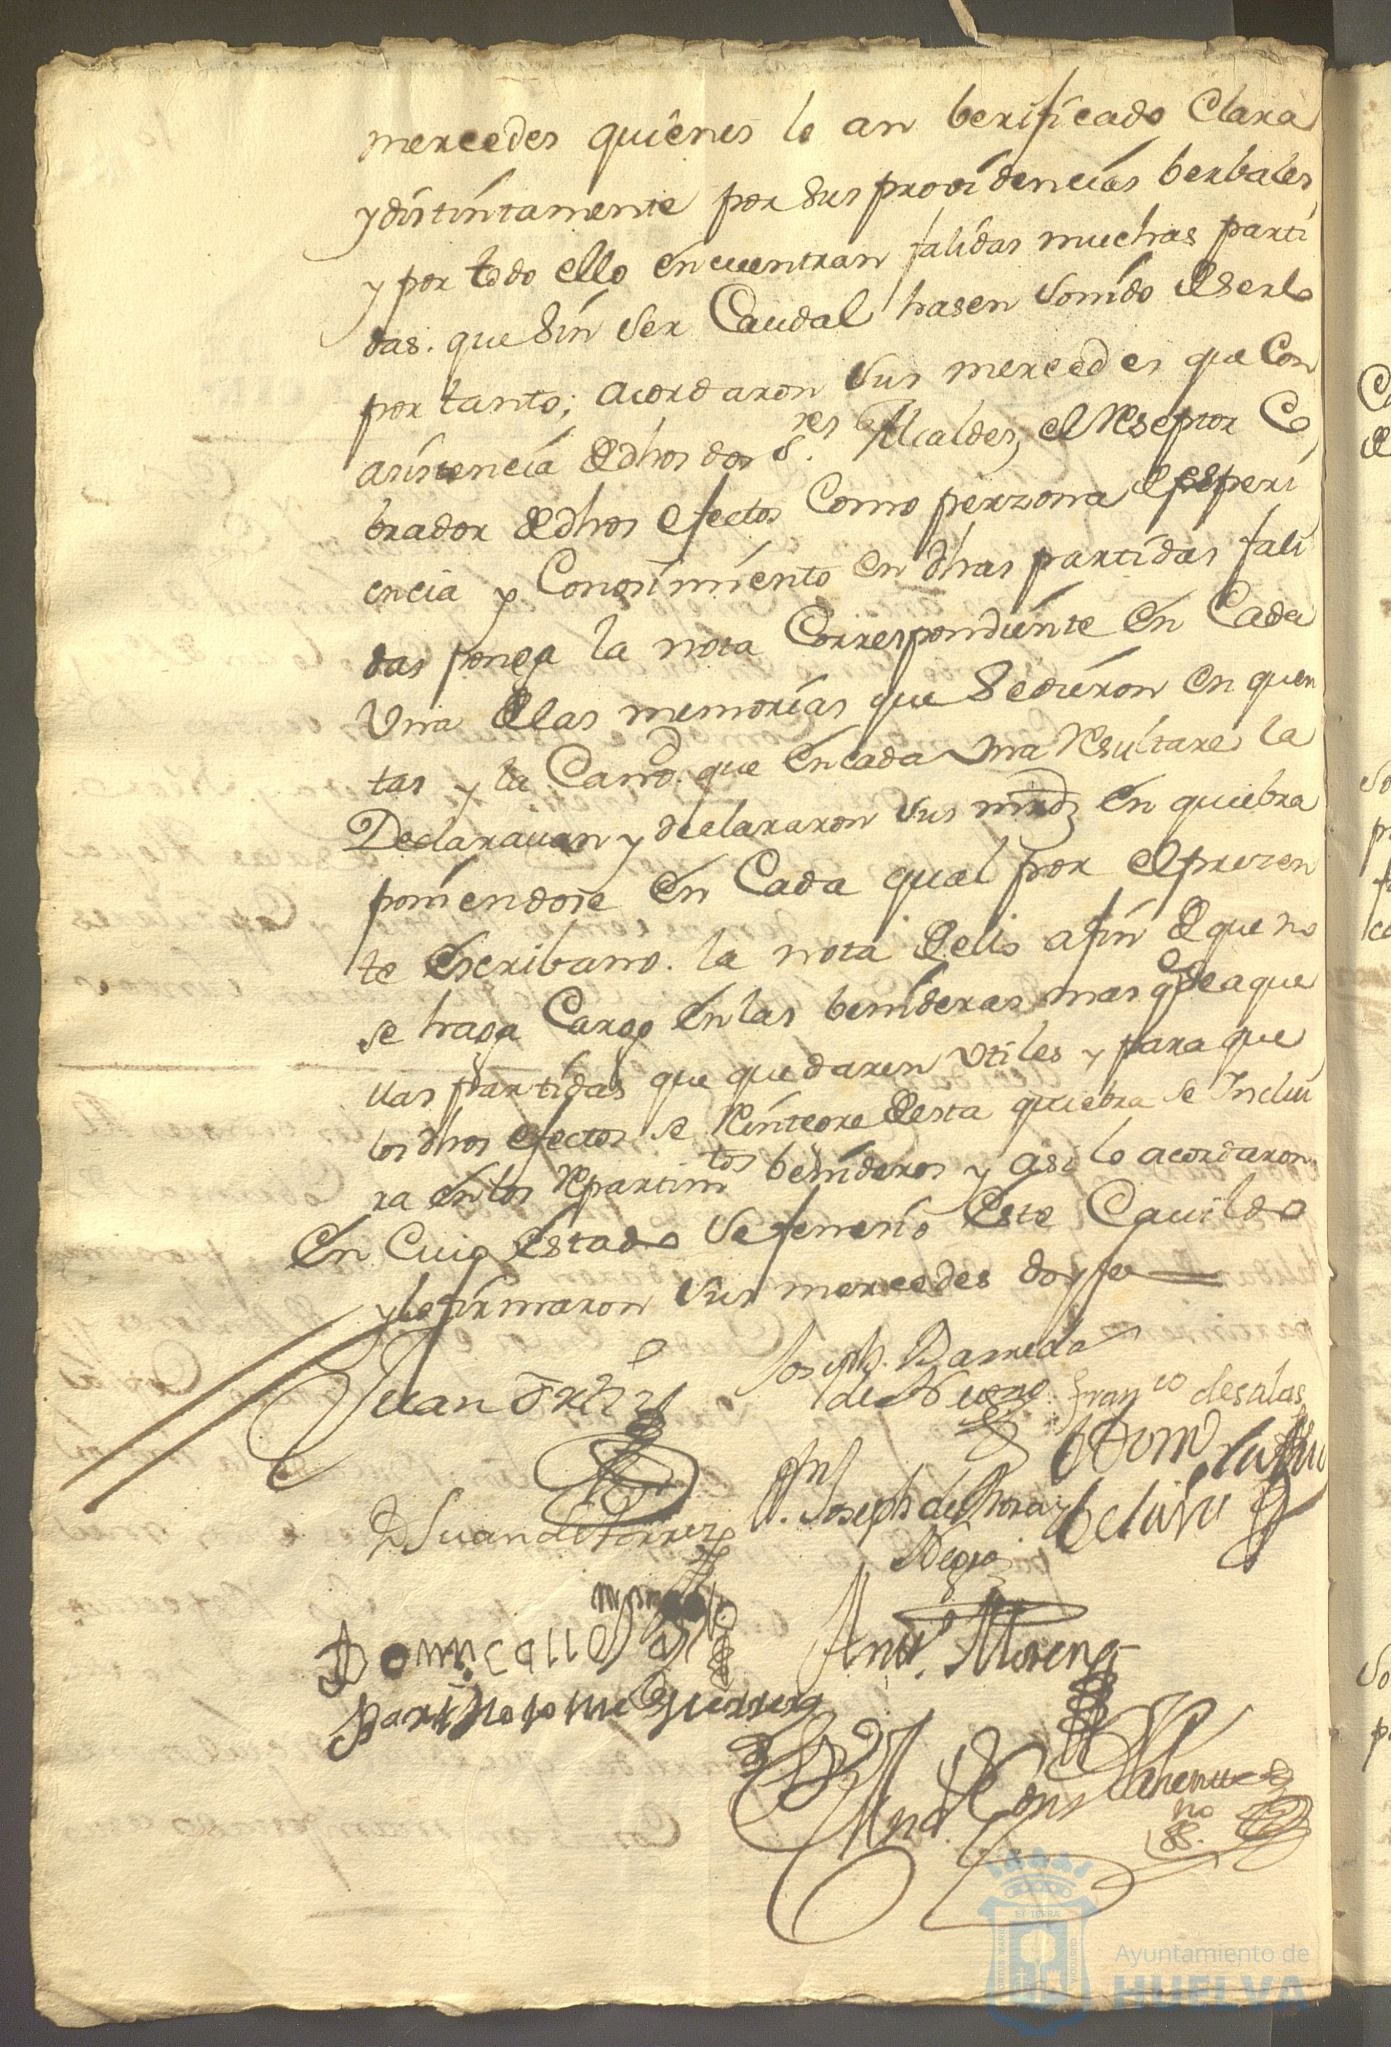 mercedes quienes lo an berificado Clara
ydistintamente por Sus providencias berbales,
y por todo ello encuentran falidas muchas parti
das. que Sin Ser Caudal hasen Sonido de serlo
por tanto; acordaron Sus mercedes que Con
asistencia de dhos dos S.res Alcaldes, el Reseptor Co
brador de dhos efectos Como perzona de esperi
encia y Conosimiento en dhas partidas fali
das ponga la nota Correspondiente en Cada
Una de las memorias que Se dieron en quen
tas y la Cantd. que en cada una Resultare la
Declarauan y declararon Sus mrds en quiebra
poniendose en Cada qual por el prezen
te escribano. la nota de ello afin de que no
se haga Cargo en las benideras mas q de aque
llas partidas que quedaren Utiles y para que
los dhos efectos se Reintegre de esta quiebra se Inclui
ra en los Repartimtos benideros y asi lo acordaron
En Cuio estado Se feneció este Cauildo
y lo firmaron Sus mercedes doy fee
Juan Ortiz
Joseph. Barreda
Franco de salas
D Juan de torres
Joseph de Mora
Negro
Domingo
Anto. Moreno
Barttholome Guerrero
Ayuntamiento de
HUELVA